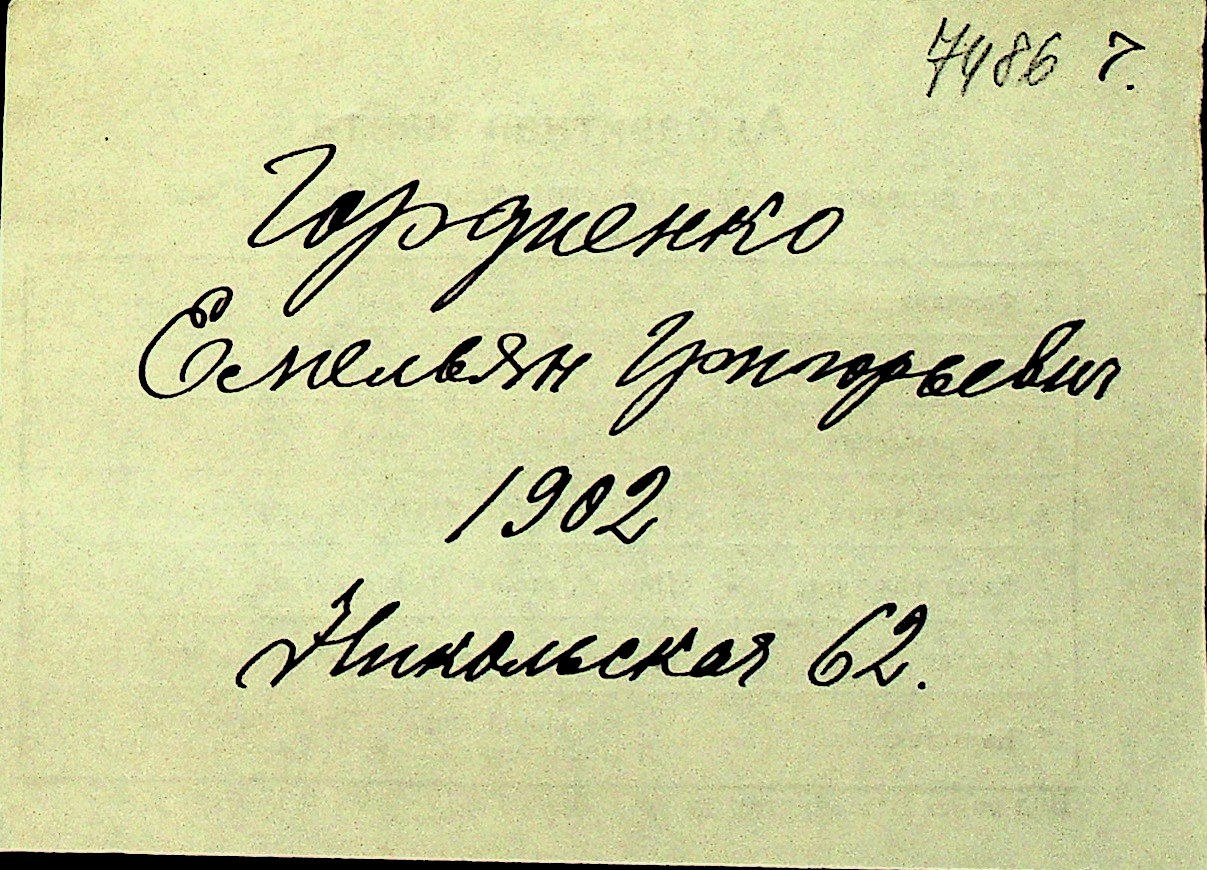 7486 г.
Гордиенко
Емельян Григорьевич
1902
Никольская 62.